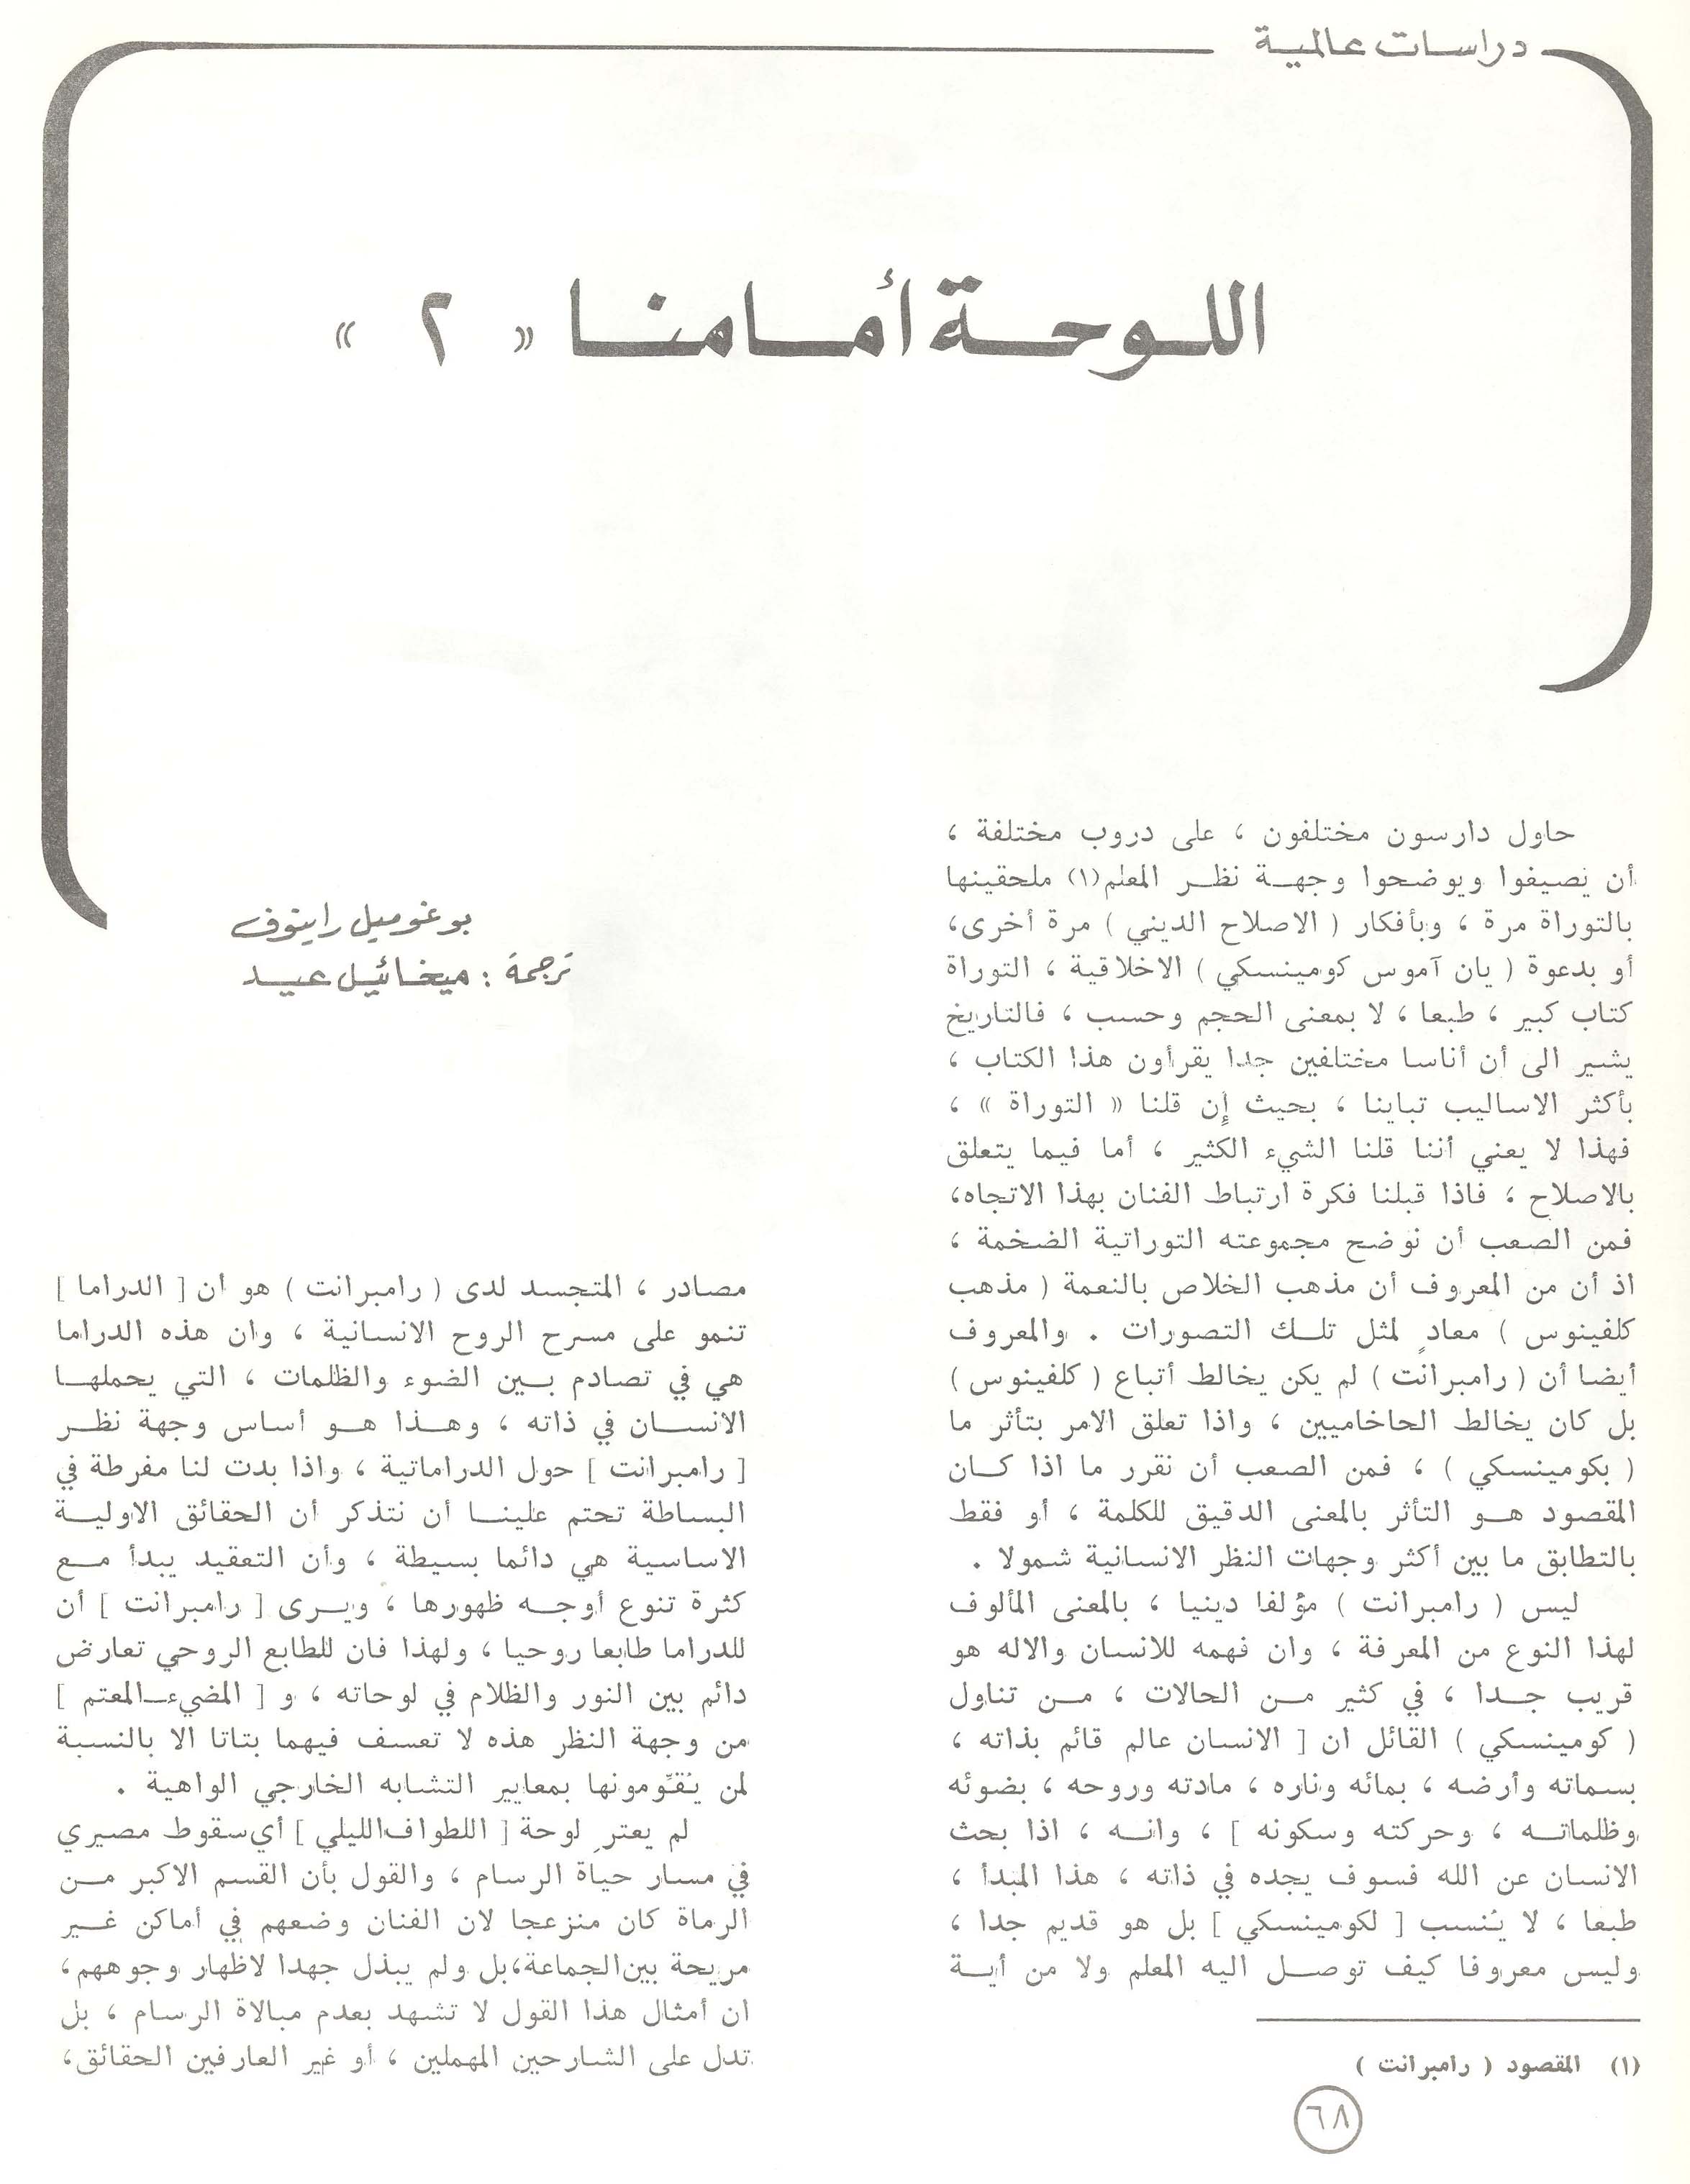 دراسات عالمية
اللوحة أمامنا « ٢ »
بوغوميل راينوف
ترجمة : ميخائيل عيد
حاول دارسون مختلفون ، على دروب مختلفة ،
أن يُصيفوا ويوضحوا وجهة نظر المعلم(١) ملحقينها
بالتوراة مرة ، وبأفكار ( الاصلاح الديني ) مرة أخرى،
أو بدعوة ( يان آموس كومينسكي ) الاخلاقية ، التوراة
كتاب كبير ، طبعا ، لا بمعنى الحجم وحسب ، فالتاريخ
يشير الى أن أناسا مختلفين جدا يقرأون هذا الكتاب ،
بأكثر الاساليب تباينا ، بحيث إن قلنا « التوراة » ،
فهذا لا يعني أننا قلنا الشيء الكثير ، أما فيما يتعلق
بالاصلاح ، فاذا قبلنا فكرة ارتباط الفنان بهذا الاتجاه،
فمن الصعب أن نوضح مجموعته التوراتية الضخمة ،
اذ أن من المعروف أن مذهب الخلاص بالنعمة ( مذهب
كلفينوس ) معادٍ لمثل تلك التصورات . والمعروف
أيضا أن ( رامبرانت ) لم يكن يخالط أتباع ( كلفينوس )
بل كان يخالط الحاخاميين ، واذا تعلق الامر بتأثر ما
( بكومينسكي ) ، فمن الصعب أن نقرر ما اذا كان
المقصود هو التأثر بالمعنى الدقيق للكلمة ، أو فقط
بالتطابق ما بين أكثر وجهات النظر الانسانية شمولا .
ليس ( رامبرانت ) مؤلفا دينيا ، بالمعنى المألوف
لهذا النوع من المعرفة ، وان فهمه للانسان والاله هو
قريب جدا ، في كثير من الحالات ، من تناول
( كومينسكي ) القائل ان [ الانسان عالم قائم بذاته ،
بسماته وأرضه ، بمائه وناره ، مادته وروحه ، بضوئه
وظلماته ، وحركته وسكونه ] ، وانه ، اذا بحث
الانسان عن الله فسوف يجده في ذاته ، هذا المبدأ ،
طبعا ، لا يُنسب [ لكومينسكي ] بل هو قديم جدا ،
وليس معروفا كيف توصل اليه المعلم ولا من أية
(١) المقصود ( رامبرانت )
مصادر ، المتجسد لدى ( رامبرانت ) هو ان [ الدراما ]
تنمو على مسرح الروح الانسانية ، وان هذه الدراما
هي في تصادم بين الضوء والظلمات ، التي يحملها
الانسان في ذاته ، وهذا هو أساس وجهة نظر
[ رامبرانت ] حول الدراماتية ، واذا بدت لنا مفرطة في
البساطة تحتم علينا أن نتذكر أن الحقائق الاولية
الاساسية هي دائما بسيطة ، وأن التعقيد يبدأ مع
كثرة تنوع أوجه ظهورها ، ويرى [ رامبرانت ] أن
للدراما طابعا روحيا ، ولهذا فان للطابع الروحي تعارض
دائم بين النور والظلام في لوحاته ، و [ المضيء-المعتم ]
من وجهة النظر هذه لا تعسف فيهما بتاتا الا بالنسبة
لمن يُقوّمونها بمعايير التشابه الخارجي الواهية .
لم يعترِ لوحة [ اللطواف الليلي ] أي سقوط مصيري
في مسار حياة الرسام ، والقول بأن القسم الاكبر من
الرماة كان منزعجا لان الفنان وضعهم في أماكن غير
مريحة بين الجماعة،بل ولم يبذل جهدا لاظهار وجوههم،
ان أمثال هذا القول لا تشهد بعدم مبالاة الرسام ، بل
تدل على الشارحين المهملين ، أو غير العارفين الحقائق،
٦٨